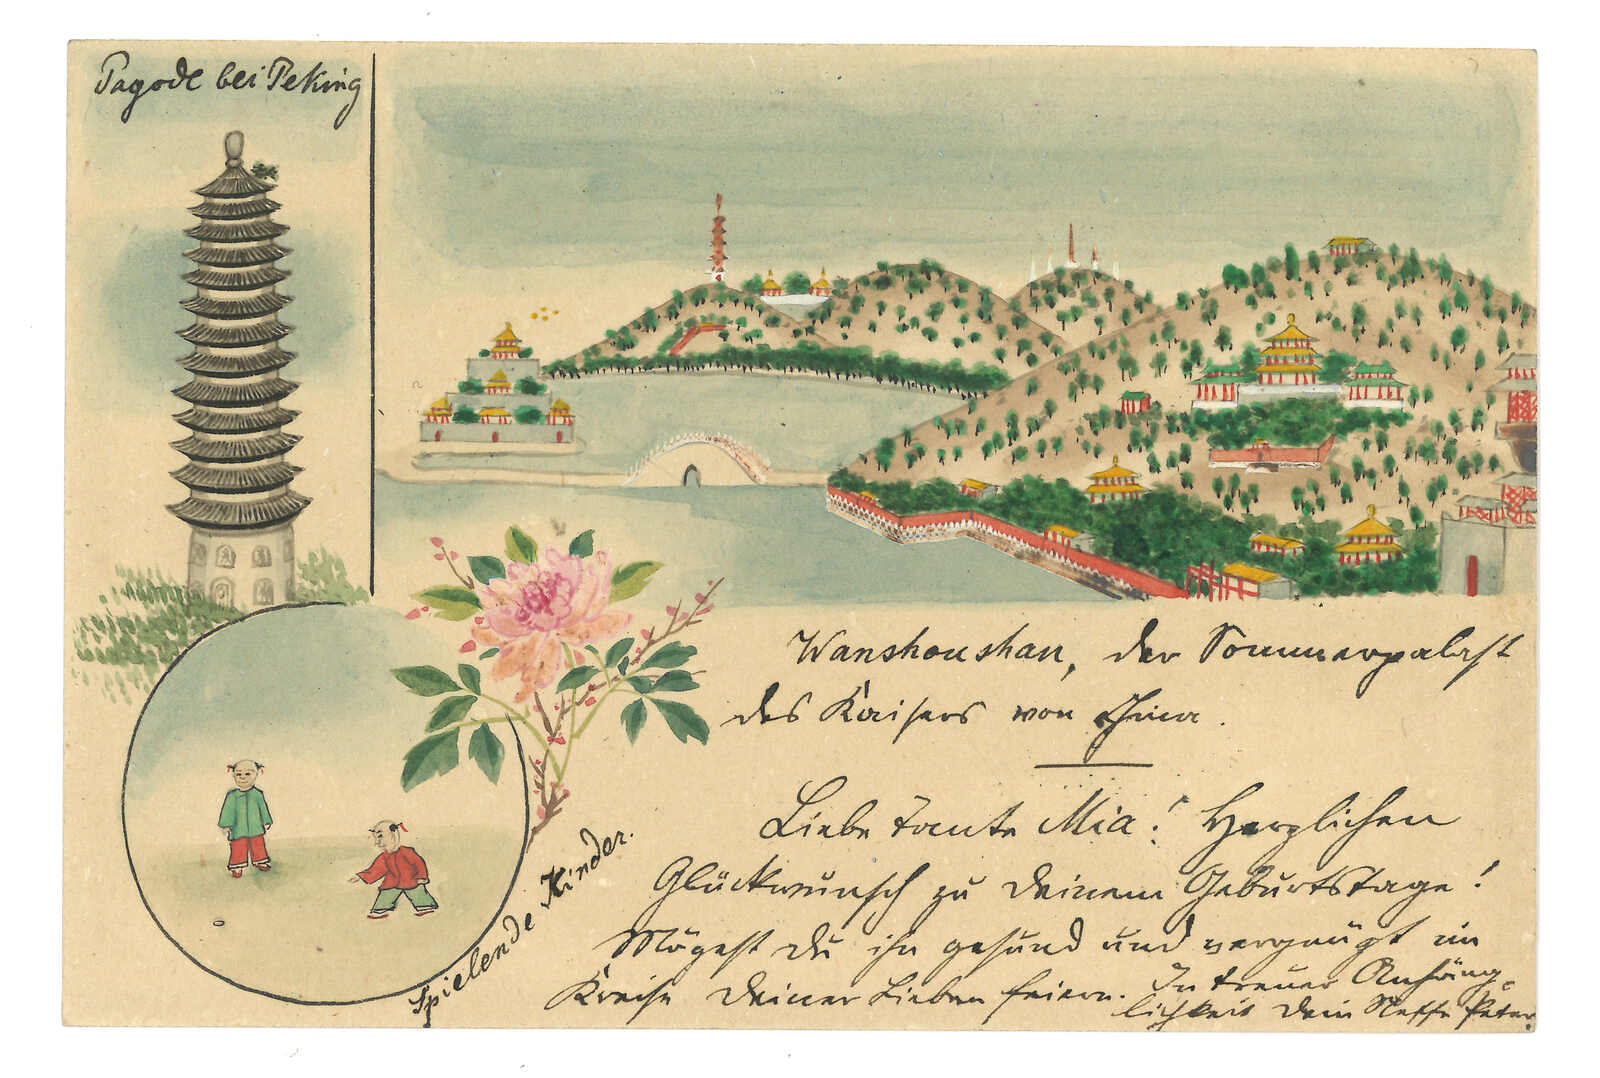 Pagode bei Peking
Wanshoushan, der Sommerpalast
des Kaisers von China.
Liebe Tante Mia! Herzlichen
Glückwunsch zu Deinem Geburtstage!
Mögest Du ihn gesund und vergnügt im
Kreise Deiner Lieben feiern. In treuer Anhäng-
lichkeit Dein Neffe Peter.
Spielende Kinder.